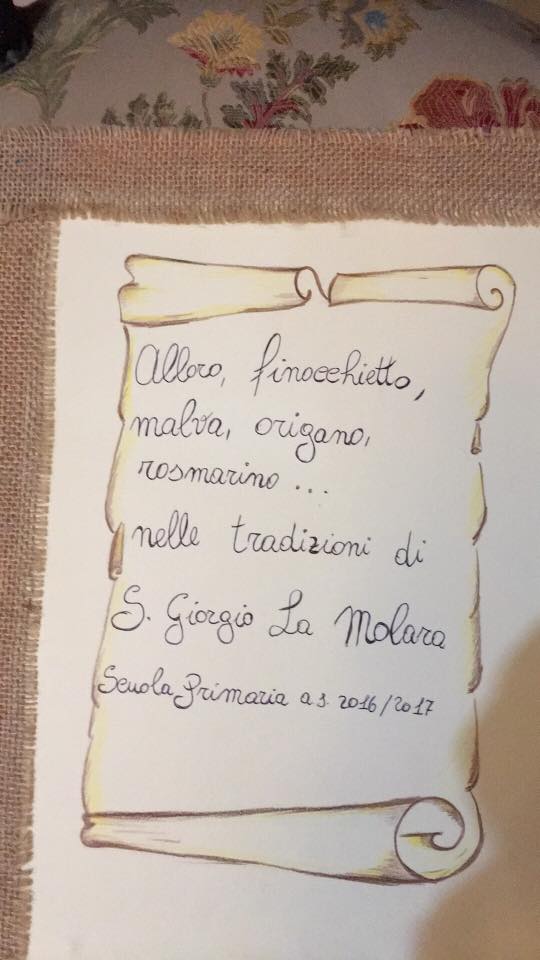 Alloro, finocchietto,
malva, origano,
rosmarino ...
nelle tradizioni di
S. Giorgio La Molara
Scuola Primaria a s. 2016/2017